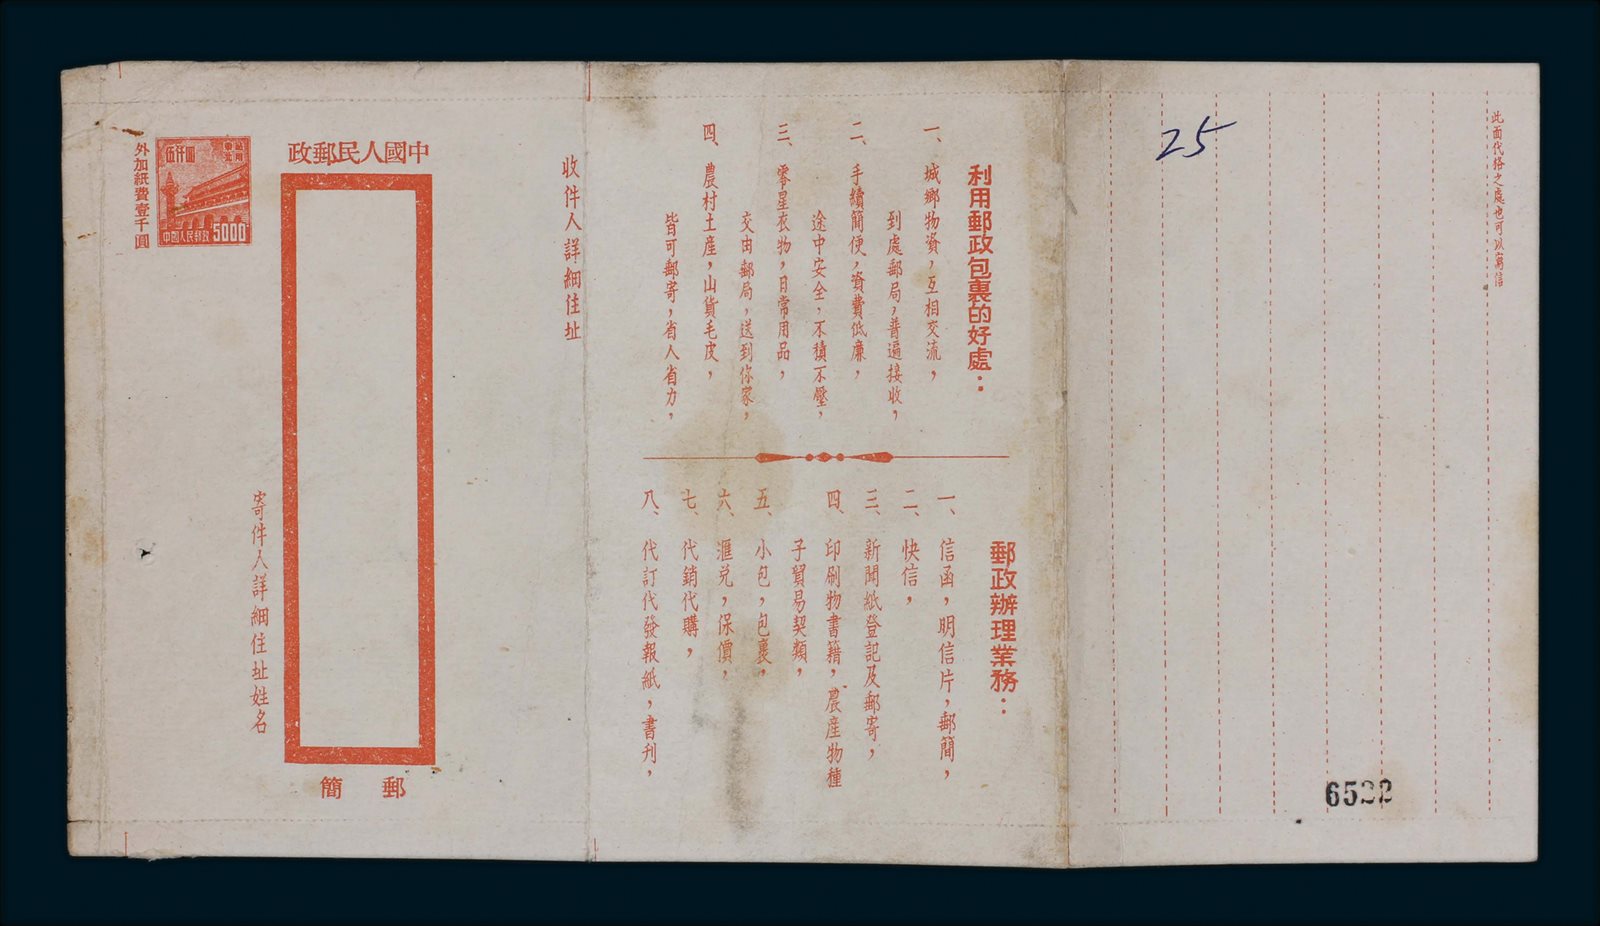 此面代格之處也可以寫信
25
6522
利用郵政包裹的好處：
一、城鄉物資，互相交流，
到處郵局，普遍接收，
二、手續簡便，資費低廉，
途中安全，不積不壓，
三、零星衣物，日常用品，
交由郵局，送到你家，
四、農村土產，山貨毛皮，
皆可郵寄，省人省力，
郵政辦理業務：
一、信函，明信片，郵簡，
二、快信，
三、新聞紙登記及郵寄，
四、印刷物書籍，農產物種
子貿易契類，
五、小包，包裹，
六、滙兌，保價，
七、代銷代購，
八、代訂代發報紙，書刊，
收件人詳細住址
中國人民郵政
郵簡
寄件人詳細住址姓名
伍仟圓
東北貼用
中國人民郵政
5000
外加紙費壹千圓